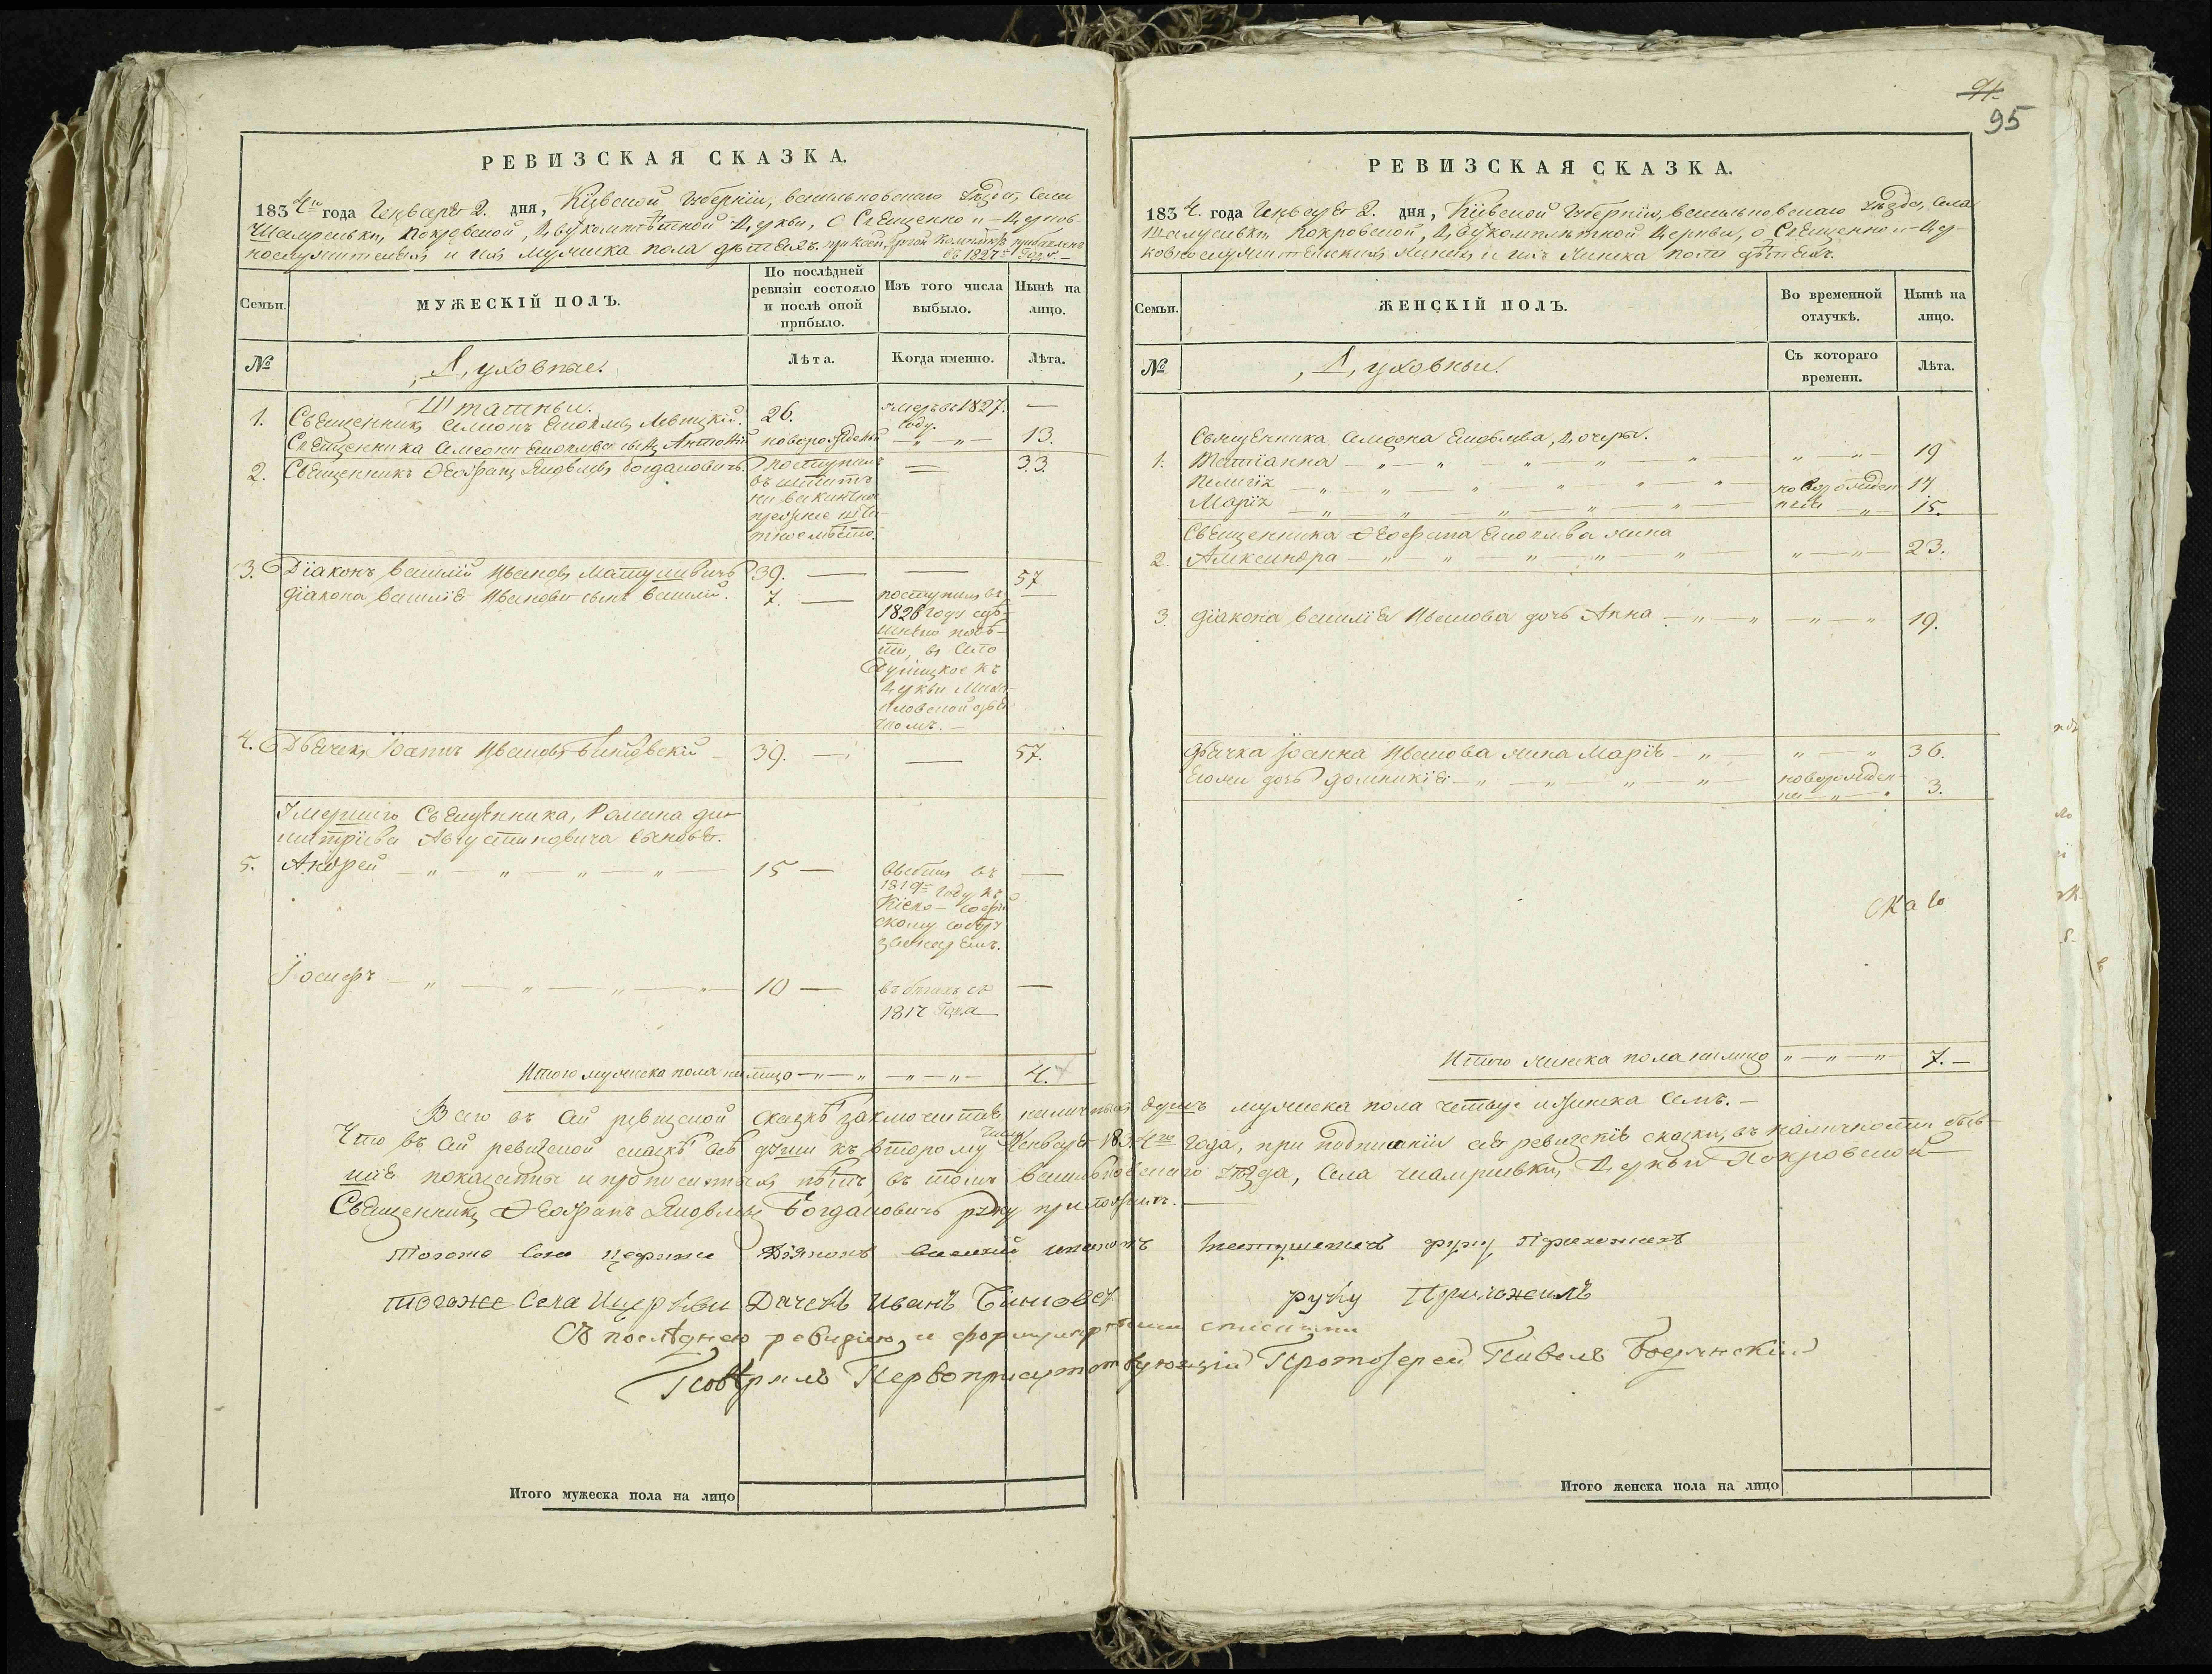 91.
95
РЕВИЗСКАЯ СКАЗКА.
1834го года Генваря 2. дня, Кіевской Губерніи, Васильковскаго уѣзда, Села
Шамраевки, Покровской, Двукомплѣтной Церкви, О Священно и Церков
нослужителяхъ и ихъ мужеска пола дѣтяхъ.
въ 1827м Годѣ.
Семьи.
МУЖЕСКІЙ ПОЛЪ.
По послѣдней ревизіи состояло и послѣ оной прибыло.
Изъ того числа выбыло.
Нынѣ на лицо.
№
Духовные.
Лѣта.
Когда именно.
Лѣта.
Штатные.
1. Священникъ Симеонъ Левицкій. 26. умеръ въ 1827. году. —
Священника Симеона сынъ Антоній новорожденый — „ — „ — 13.
2. Священникъ Ѳеофанъ Яковлевъ Богдановичъ. поступилъ = 33.
3. Діаконъ Василій Ивановъ 39. — — 57
Діакона Василія Иванова сынъ Василій. 7. — поступилъ въ —
1828 году
въ Село
къ
Церкви Миха-
4. Дьячекъ Іоаннъ Ивановъ 39. — — 57.
Умершаго Священника, Романа Ди-
митріева Августиновича сыновья.
5. Андрей — „ — „ — „ — „ — 15 — выбылъ въ —
1819м Году къ
Кіево-Софій
скому собору
звонаремъ.
Іосифъ — „ — „ — „ — „ — 10 — въ бѣгахъ съ —
1817 Года
Итого мужеска пола на лицо — „ — „ — „ — „ — 4.
РЕВИЗСКАЯ СКАЗКА.
1834. года Генваря 2. дня, Кіевской Губерніи, Васильковскаго уѣзда, Села
Шамраевки Покровской, Двукомплѣтной Церкви, о Священно и Цер-
ковнослужительскихъ женахъ и ихъ женска пола дѣтяхъ.
Семьи.
ЖЕНСКІЙ ПОЛЪ.
Во временной отлучкѣ.
Нынѣ на лицо.
№
Духовные.
Съ котораго времени.
Лѣта.
Священника Симеона дочери.
1. Татіанна — „ — „ — „ — „ — „ — „ — „ — 19
Пелагія — „ — „ — „ — „ — „ новорожден 17
Марія — „ — „ — „ — „ — „ ные „ 15.
Священника Ѳеофана Яковлева жена
2. Александра — „ — „ — „ — „ — „ — „ — „ — 23.
3. Діакона Василія Иванова дочь Анна — „ — „ — „ — „ 19.
Дьячка Іоанна Иванова жена Марія — „ „ — „ 36.
Его же дочь Домникія — „ — „ — „ — „ новорожден
ная — „ — „ 3.
Итого женска пола на лицо „ — „ — „ 7. —
Всего въ сей ревизской сказкѣ заключается наличныхъ душъ мужеска пола четыре и женска семь. —
Что въ сей ревизской сказкѣ всѣ души къ второму числу Генваря 1834го года, при подписаніи сея ревизскія сказки, въ наличности быв-
шія показаны и прописныхъ нѣтъ, въ томъ Васильковскаго уѣзда, Села Шамраевки, Церкви Покровской —
Священникъ Ѳеофанъ Яковлевъ Богдановичъ руку приложилъ. —
Тогоже Села Церкви Діяконъ Василій руку приложилъ
Тогоже Села Церкви Дячекъ Иванъ руку Приложилъ
Съ послѣднею ревизіею, и формулярными списками
Повѣрялъ Первоприсутствующій Протоіерей Павелъ
Итого мужеска пола на лицо
Итого женска пола на лицо